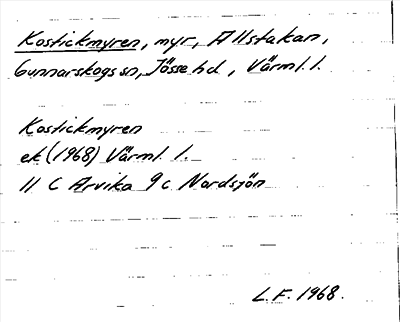 Kostickmyren, myr, Allstakan,
Gunnarskogs sn, Jösse hd, Värml. l.
Kostickmyren
ek (1968) Värml. l.
11 C Arvika 9c Nordsjön
L.F. 1968.